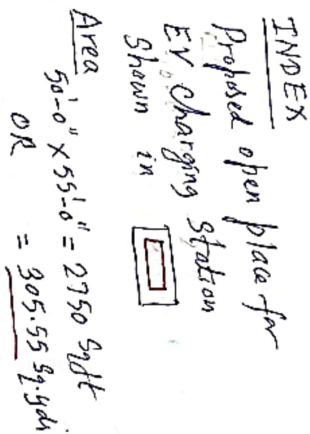 INDEX
Proposed open place for
EV charging Station
Shown in
Area
50'-0" x 55'-0" = 2750 Sqft
OR = 305.55 Sq.yds